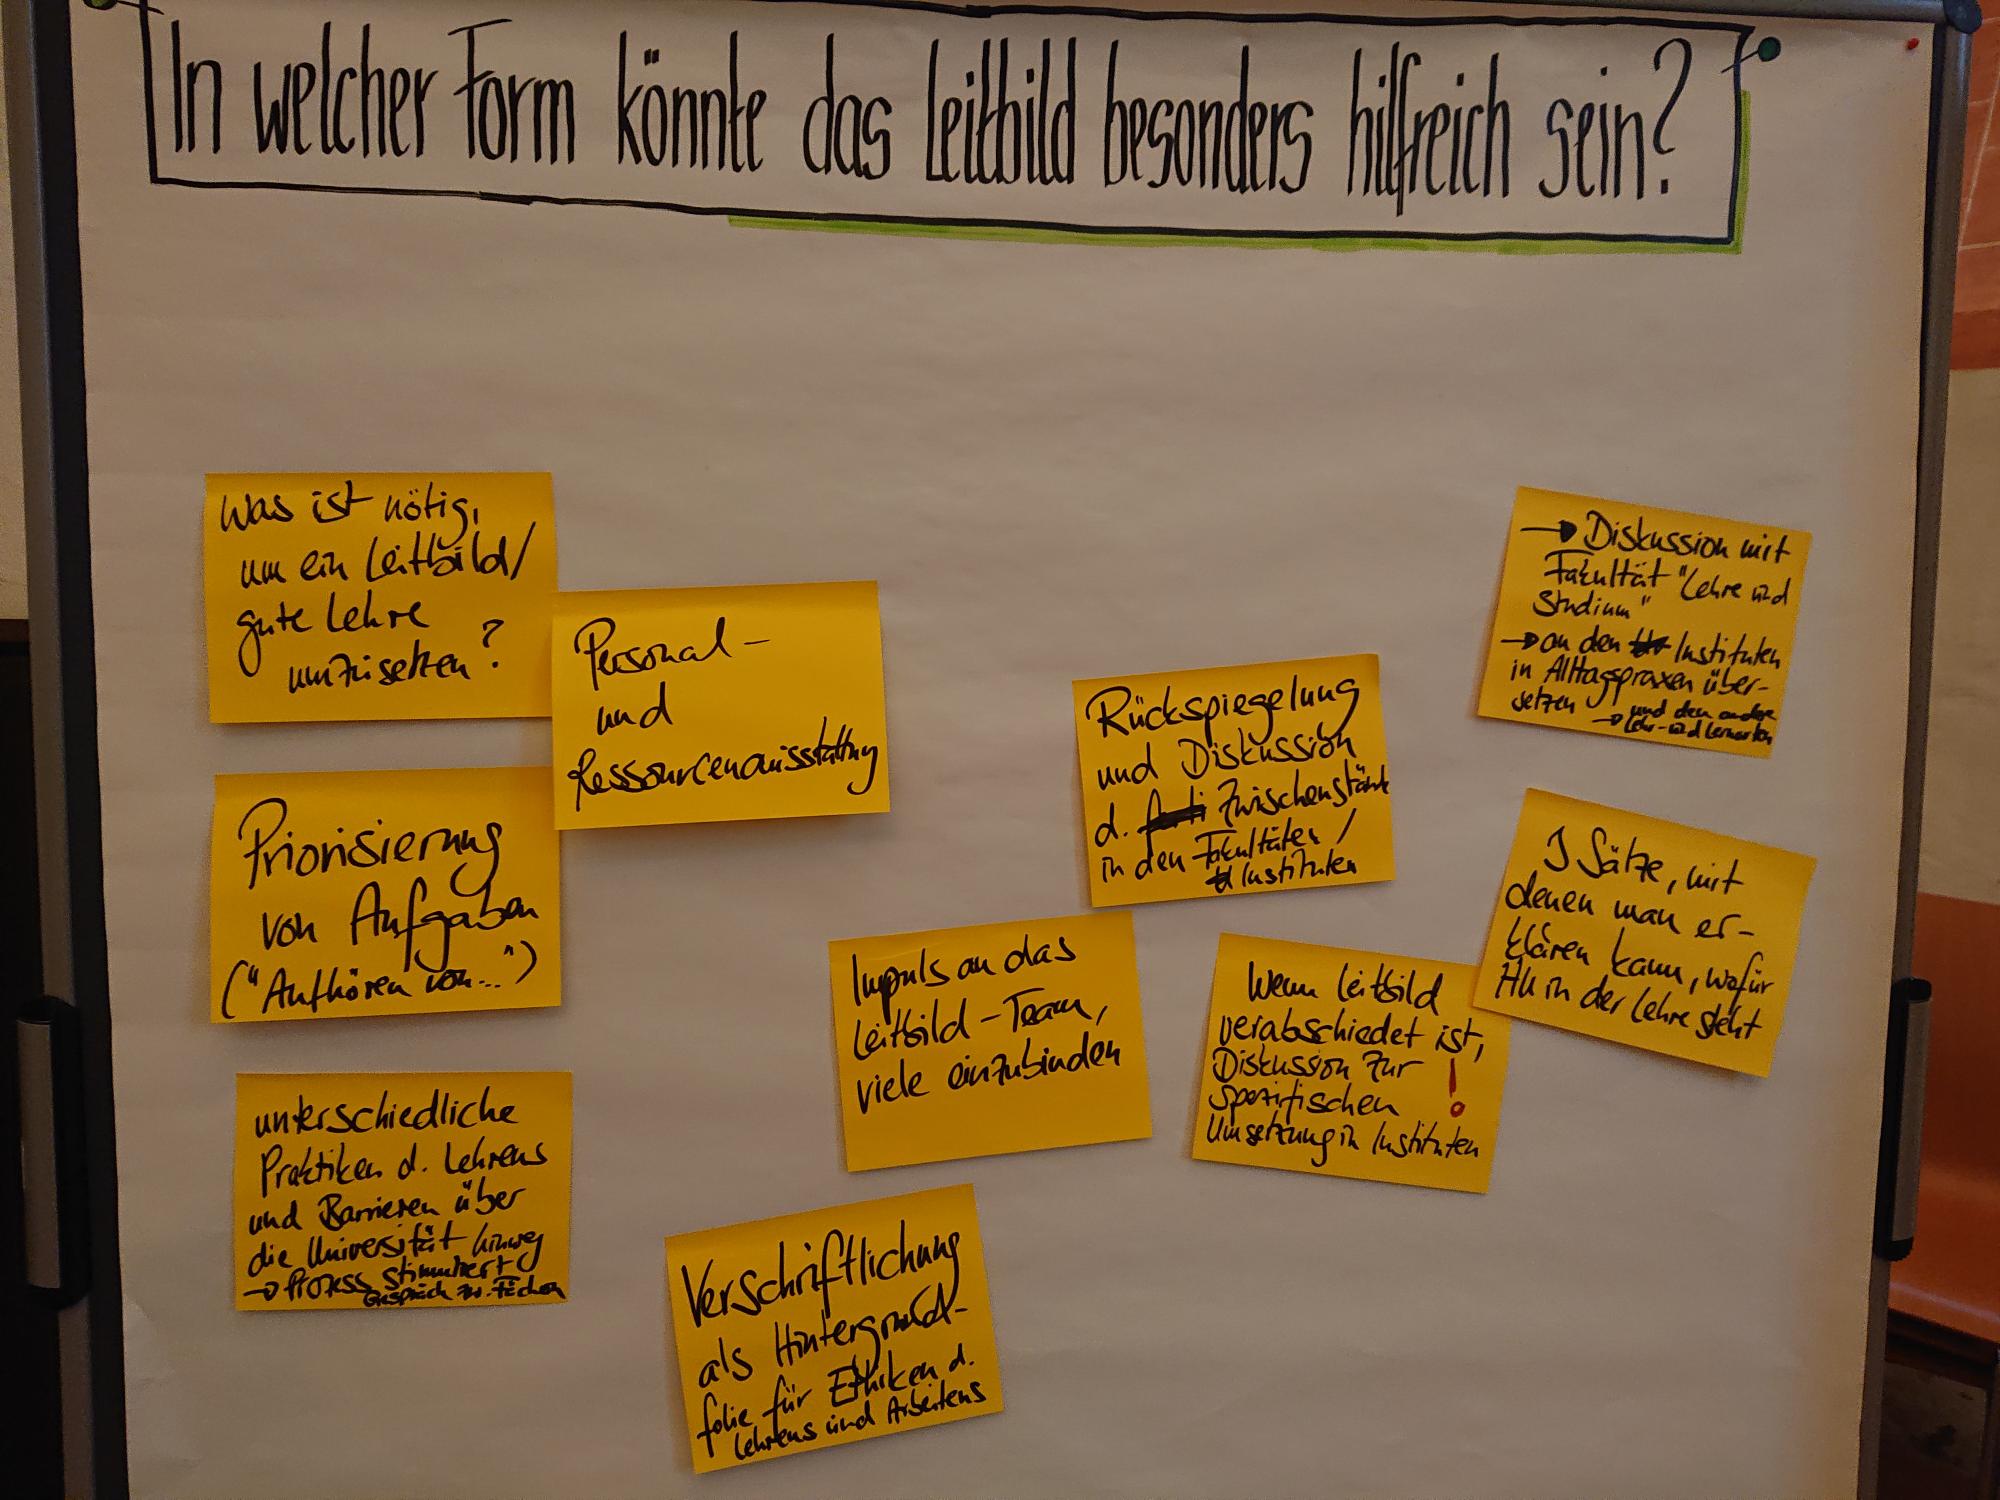 In welcher Form könnte das Leitbild besonders hilfreich sein?
Was ist nötig,
um ein Leitbild/
gute Lehre
umzusetzen?
Personal-
und
Ressourcenausstattung
Priorisierung
von Aufgaben
("Aufhören von...")
unterschiedliche
Praktiken d. Lehrens
und Barrieren über
die Universität hinweg
→ Prozess stimuliert
Gespräch zw. Fächern
Verschriftlichung
als Hintergrund-
folie für Ethiken d.
Lehrens und Arbeitens
Impuls an das
Leitbild-Team,
viele einzubinden
Rückspiegelung
und Diskussion
d. Zwischenstände
in den Fakultäten/
Instituten
Wenn Leitbild
verabschiedet ist,
Diskussion zur !
spezifischen
Umsetzung in Instituten
→ Diskussion mit
Fakultät "Lehre und
Studium"
→ an den Instituten
in Alltagspraxen über-
setzen
→ und den
Lehr- und Lernorten
3 Sätze, mit
denen man er-
klären kann, wofür
in der Lehre steht